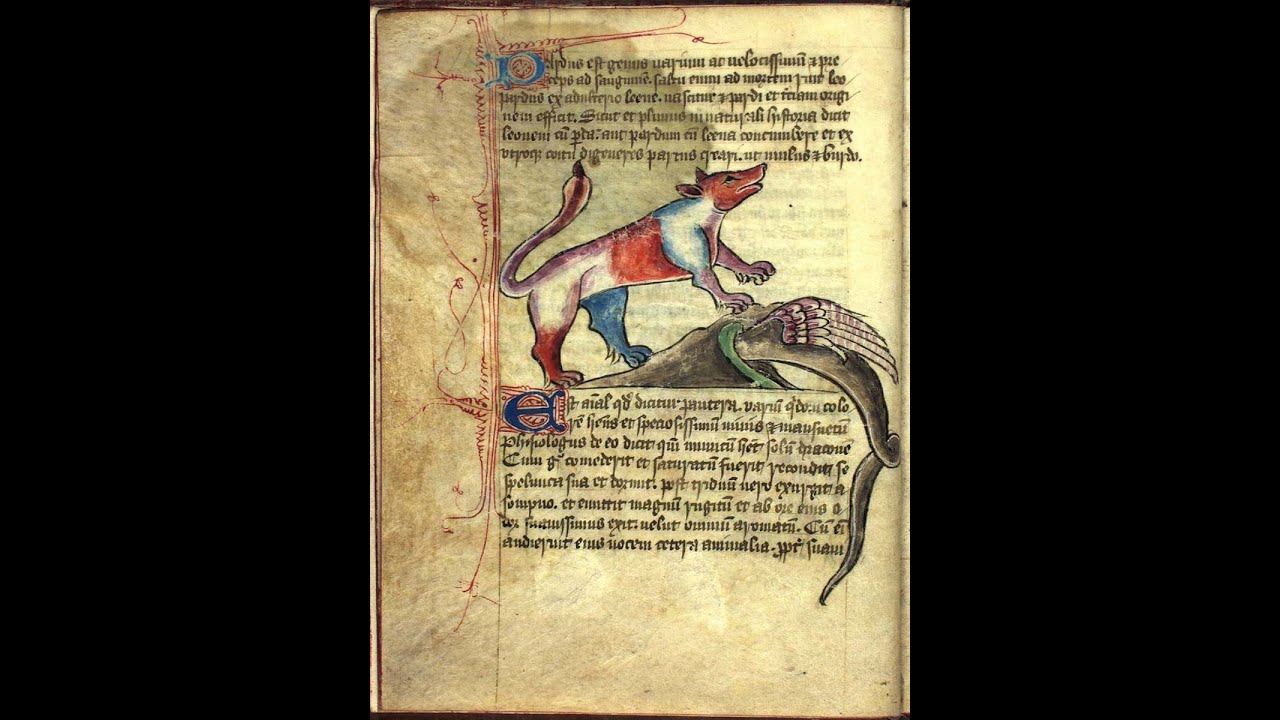 Pardus est genus uarium ac uelocissimū ⁊ pre
ceps ad sanguinē. saltu enim ad mortem ruit leo
pardus ex adulterio leene. nascitur ⁊ pardi et t̄ciam origi
nem efficit. Sicut et plinius in naturali historia dicit
leonem cū parda. aut pardum cū leena concumbere et ex
utroqꝫ coitu digeneres partus creari. ut mulus ⁊ burdo.
Est aīal qd̄ dicitur pantera. uarium qdem colo
rē hens et speciosissimum nimis ⁊ mansuetū
Phisiologus de eo dicit qm̄ inimicū het solū draconē
Cum gͦ comederit et saturatū fuerit recondit se
spelunca sua et dormit. post triduum uero exurgit a
sompno. et emittit magnū rugitū et ab ore eius o
dor suauissimus exit. uelut omnium aromatū. Cū eī
audierint eius uocem cetera animalia. ꝓpt̄ suaui